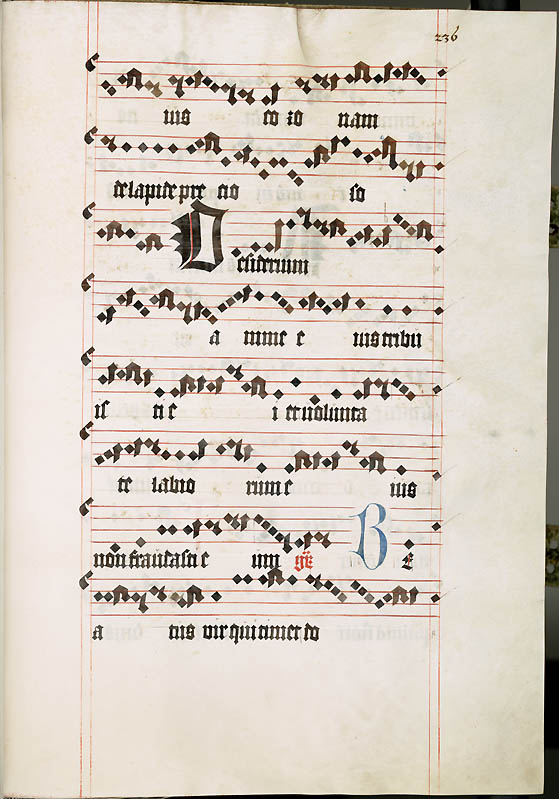 236
ius co ro nam
de lapide pre cio so
Desiderium
a nime e ius tribu
is ti e i et uolunta
te labio rum e ius
non fraudasti e um gr̄ BE
a tus vir qui timet do